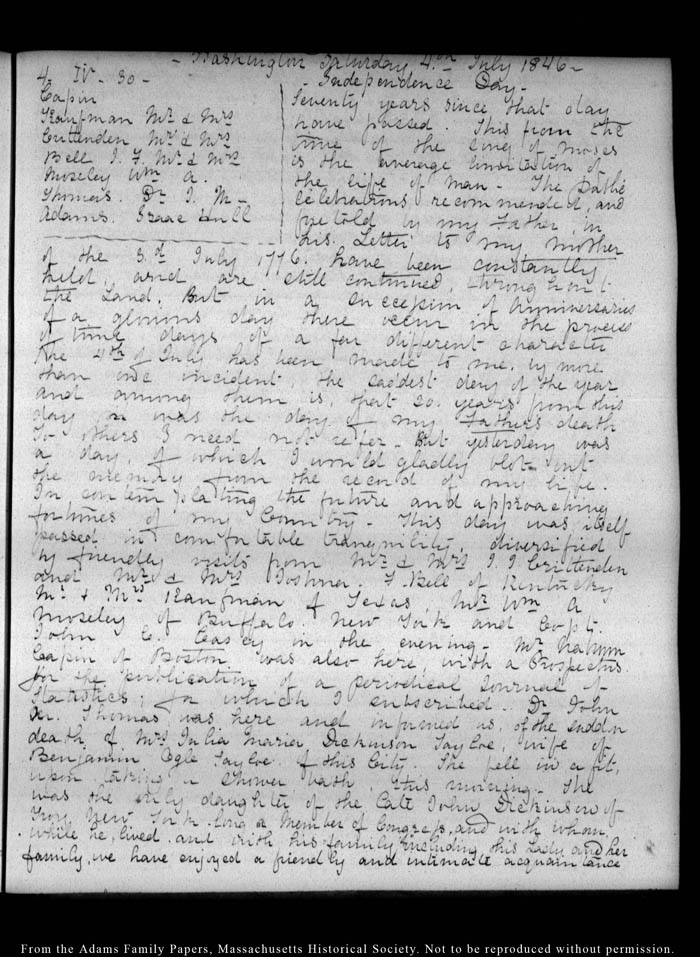 - Washington Saturday 4.th July 1846 -
4. IV - 30 -
Capin
Kaufman Mr. & Mrs
Crittenden Mr. & Mrs
Bell J. F. Mr. & Mrs
Moseley Wm A.
Thomas. Dr J. M -
Adams. Isaac Hull
- Independence Day -
Seventy years since that day
have passed. This from the
time of the song of Moses
is the average limitation of
the life of man - The
celebrations recommended, and
foretold by my Father, in
his Letter to my mother
of the 3.d July 1776. have been constantly
held and are still continued, throughout
the Land. But in a succession of Anniversaries
of a glorious day there occur in the process
of time days of a far different character
The 4th of July has been made to me, by more
than one incident, the saddest day of the year
and among them is that 20. years from this
day was the day of my Father's death
To others I need not refer - But yesterday was
a day, of which I would gladly blot out
the memory from the record of my life.
In contemplating the future and approaching
fortunes of my Country - This day was itself
passed in comfortable tranquility, diversified
by friendly visits from Mr. & Mrs J. J. Crittenden
and Mr. & Mrs Joshua F. Bell of Kentucky
Mr. & Mrs Kaufman of Texas, Mr. Wm A
Moseley of Buffalo New York and Capt.
John C. Casey in the evening - Mr. Nahum
Capin of Boston was also here, with a Prospectus
for the publication of a periodical Journal of
Statistics, for which I subscribed. Dr John
M. Thomas was here and informed us, of the sudden
death of Mrs Julia Maria Dickinson Tayloe, wife of
Benjamin Ogle Tayloe of this City. She fell in a fit,
upon taking a shower bath, this morning - She
was the only daughter of the late John Dickinson of
Troy New York long a Member of Congress, and with whom,
while he lived, and with his family including this Lady and her
family, we have enjoyed a friendly and intimate acquaintance
From the Adams Family Papers, Massachusetts Historical Society. Not to be reproduced without permission.